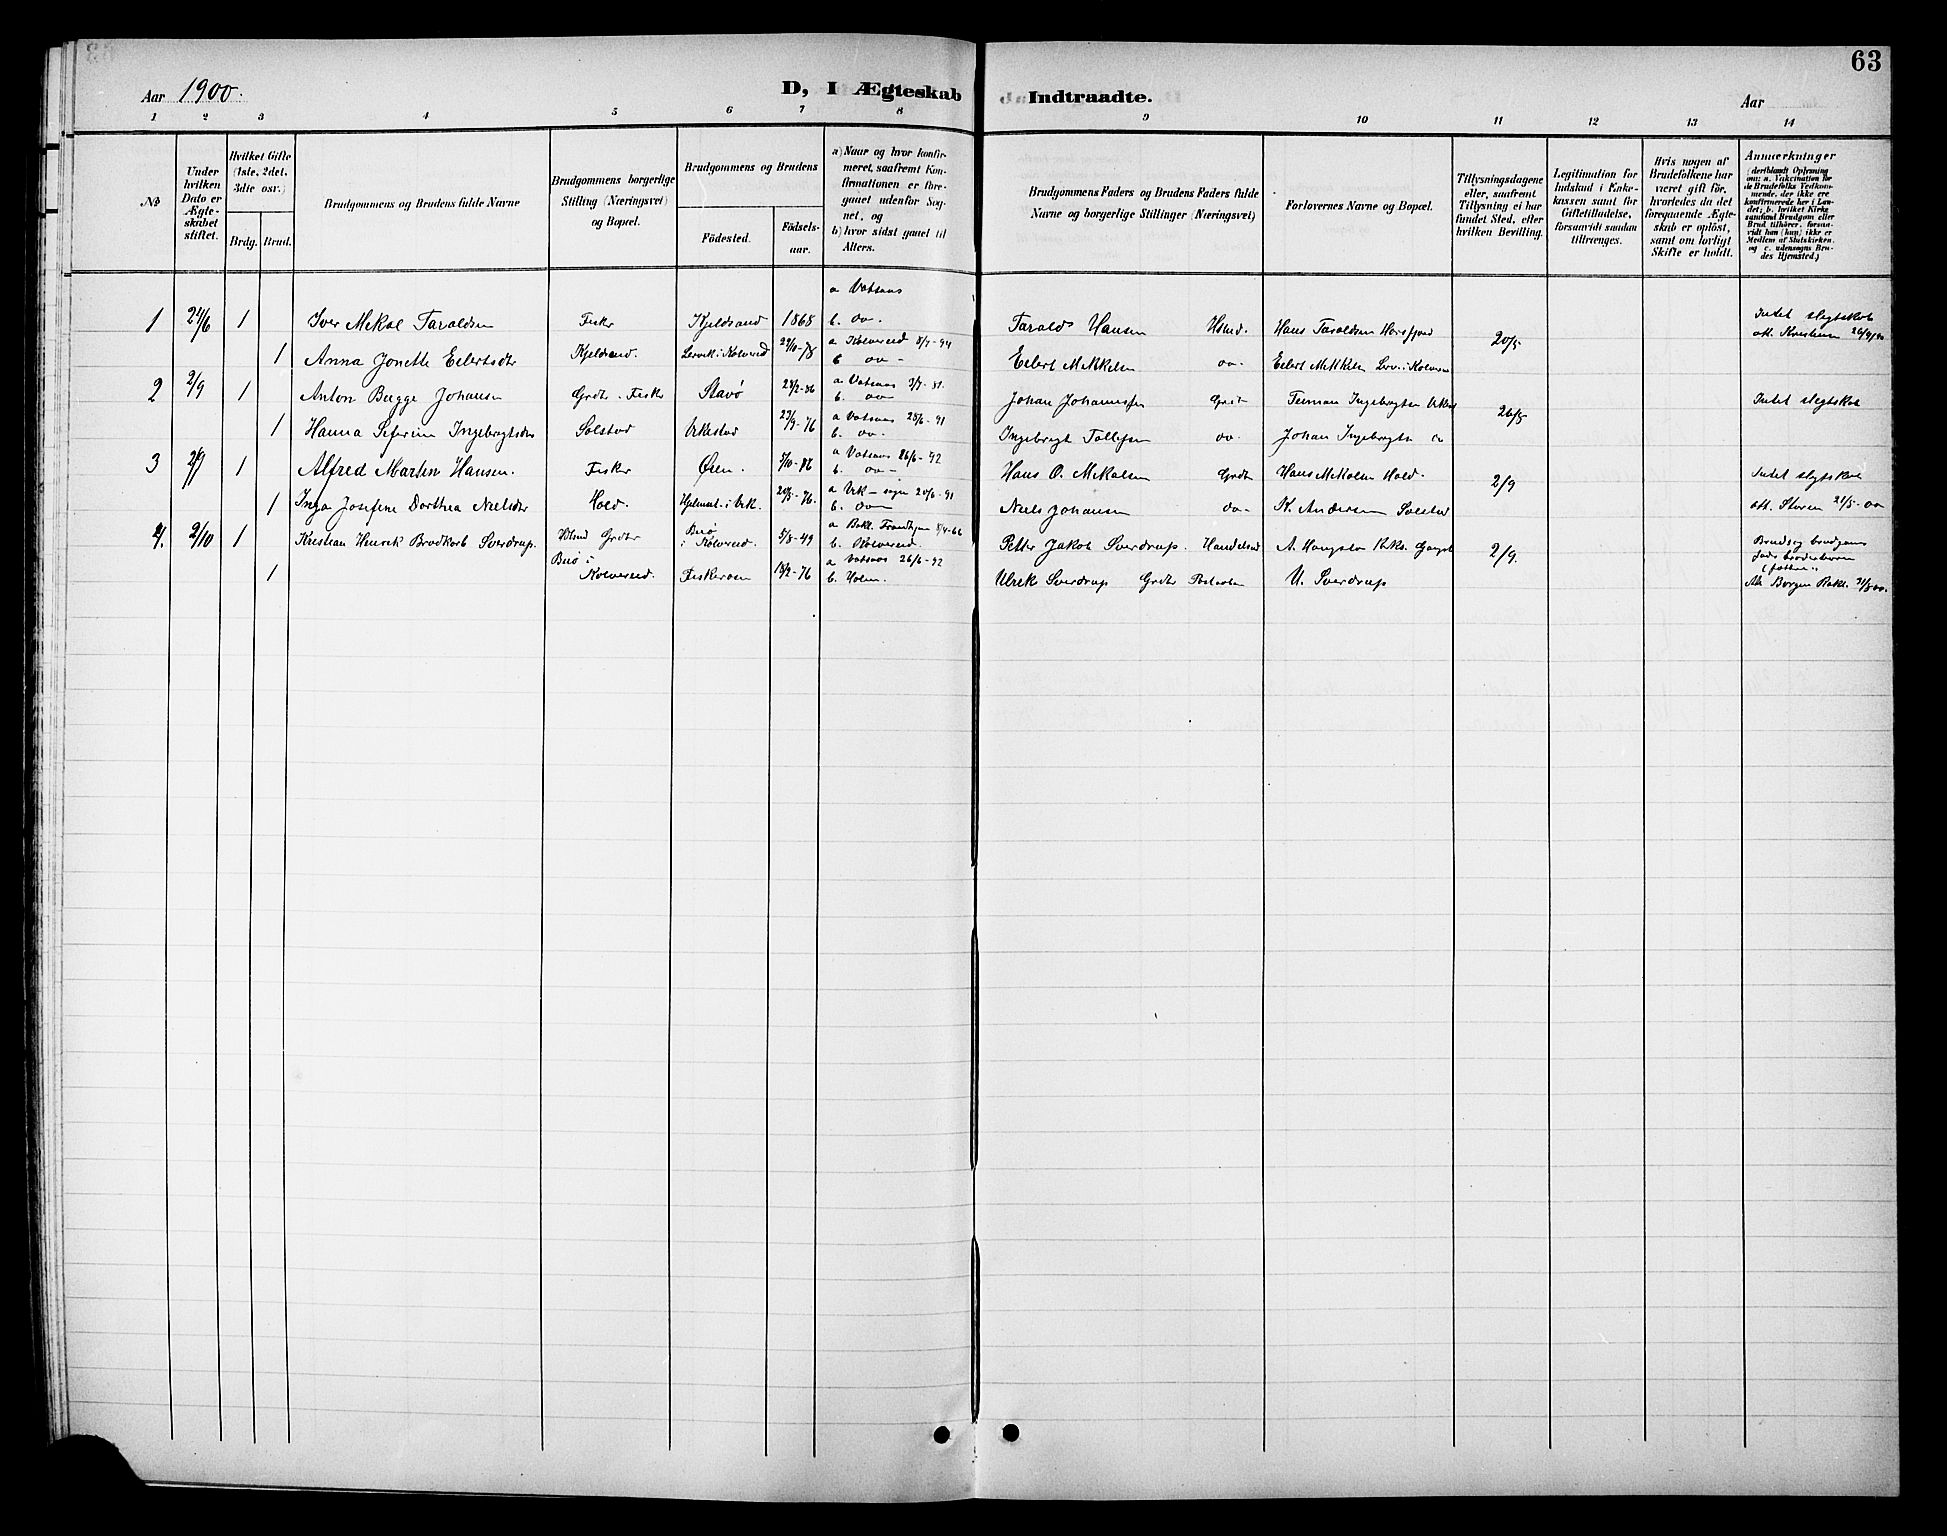 63
Aar 1900.
D, I Ægteskab Indtraadte.
Aar
1 2 3 4 5 6 7 8 9 10 11 12 13 14
No.
Under hvilken Dato er Ægteskabet stiftet.
Hvilket Gifte (1ste, 2det, 3die osv.)
Brdg. Brud.
Brudgommens og Brudens fulde Navne
Brudgommens borgerlige Stilling (Næringsvei) og Bopæl.
Brudgommens og Brudens
Födested.
Födselsaar.
a) Naar og hvor konfirmeret, saafremt Konfirmationen er foregaaet udenfor Sognet, og
b) hvor sidst gaaet til Alters.
Brudgommens Faders og Brudens Faders fulde Navne og borgerlige Stillinger (Næringsvei)
Forlovernes Navne og Bopæl.
Tillysningsdagene eller, saafremt Tillysning ei har fundet Sted, efter hvilken Bevilling.
Legitimation for Indskud i Enkekassen samt for Giftetilladelse, forsaavidt saadan tiltrænges.
Hvis nogen af Brudefolkene har været gift för, hvorledes da det foregaaende Ægteskab er oplöst, samt om lovligt Skifte er holdt.
Anmærkninger
(deriblandt Oplysning om: a. Vakcination for de Brudefolks Vedkommende, der ikke ere konfirmerede her i Landet; b. hvilket Kirkesamfund Brudgom eller Brud tilhörer, forsaavidt han (hun) ikke er Medlem af Statskirken, og c. udensogns Brudes Hjemsted.)
a Vatsaas
1 24/6 1 Iver Mekal Taraldsen Fisker Kjeldsand 1868 b. do. Tarald Hansen Hans Taraldsen Horsfjord 20/5 Intet slegtskab
1 Anna Jonette Eilertsdtr Kjeldsand. Lervik i Kolvereid 29/10-78 a Kolvereid 8/7-94 b do - Eilert Mekkelsen do - Eilert Mekkelsen 26/4/00
2 2/9 1 Anton Bugge Johansen Grdr. Fisker Stavø a Vatsaas b. do Johan Johannessen Grdr Ingebrigtsen 26/5 Intet slegtskab
1 Hanna Seferine Ingebrigtsdtr Solstad Urkestad 23/9-76 a Vatsaas 28/6-91 b. do. Ingebrigt Tollefsen do - Johan Ingebrigtsen do
3 2/9 1 Alfred Martin Hansen. Fisker Øren. a Vatsaas 26/6-92 b. do - Hans O. Mekalsen Grdr Hans Mekalsen Hold. 2/9 Intet slegtskab
1 Inga Josefine Dorthea Nielsdtr Hold. 20/5-76. 20/6-91 b. do Niels Johansen do - K. Andersen Solstad
4. 2/10 1 Kristian Henrik Brodkorb Sverdrup. Grdr Buø i Kolvereid. Buø i Kolvereid. 5/8-49 b. Kolvereid. Petter Jakob Sverdrup. 2/9.
1 Fiskerosen 18/2-76 a Vatsaas 26/6-92 b. Holm. Ulrik Sverdrup Grdr U. Sverdrup